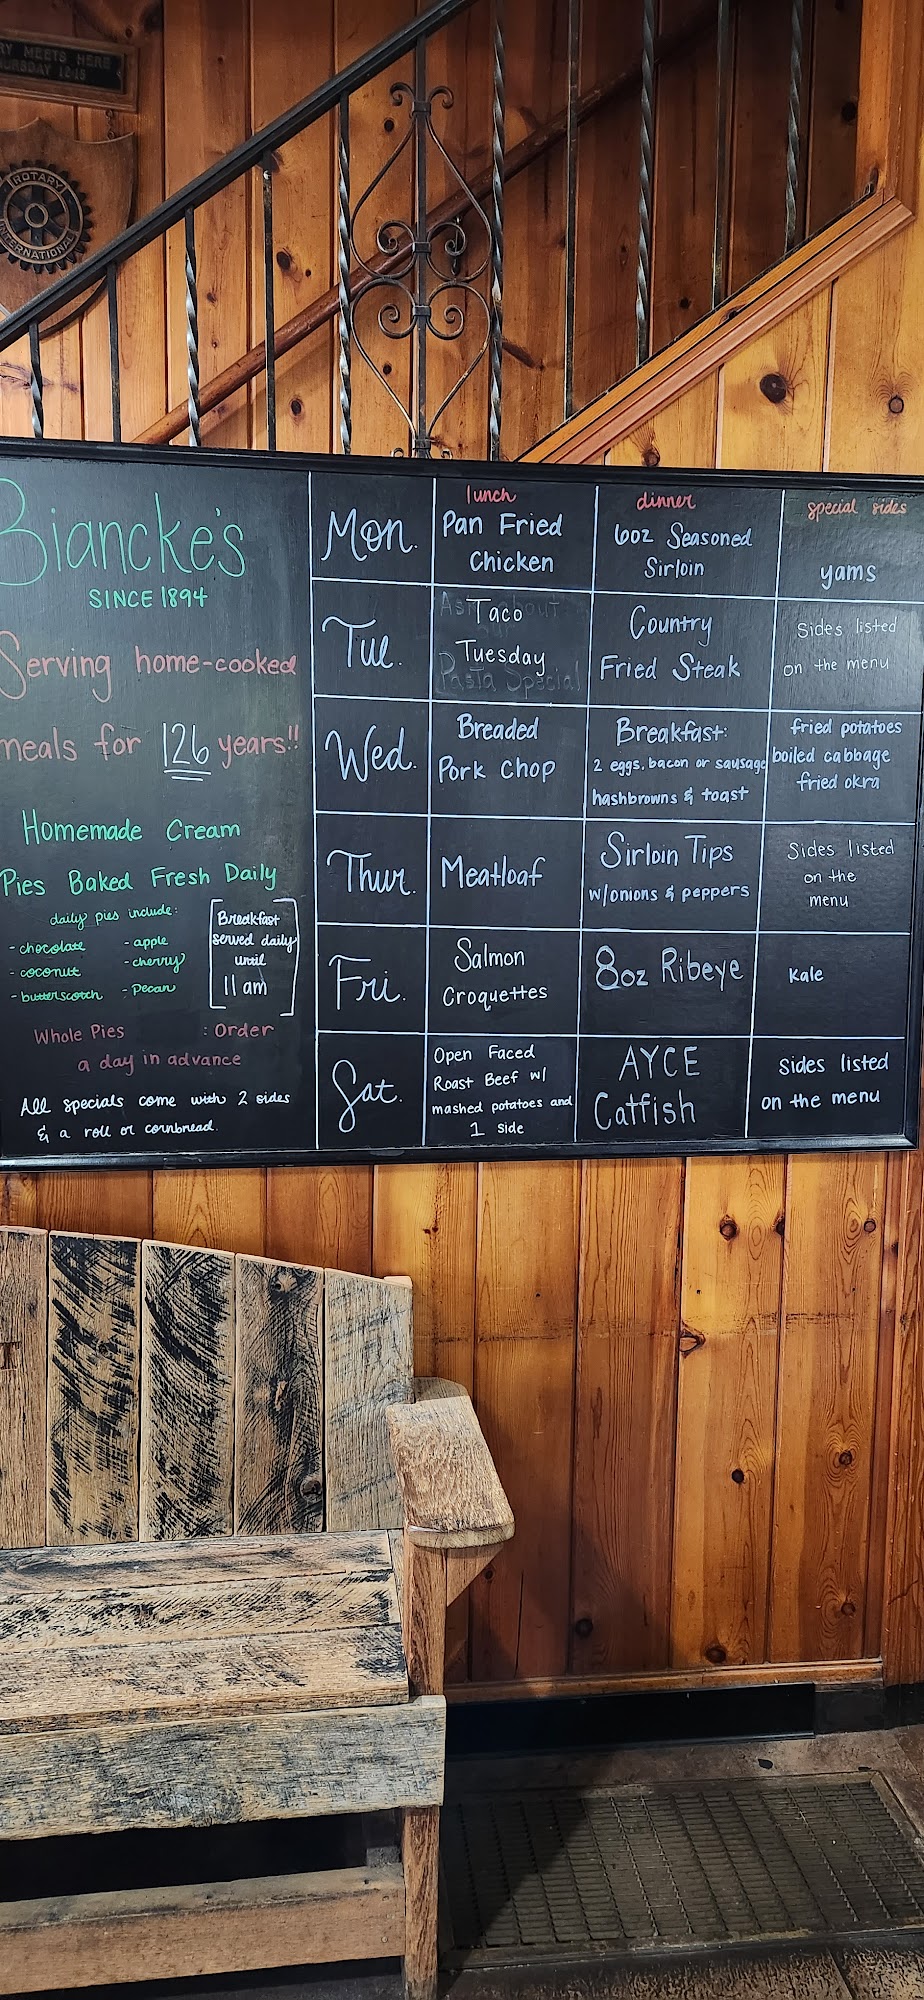 RY MEETS HERE
URSDAY 12:15
ROTARY
INTERNATIONAL
Biancke's
SINCE 1894
Serving home-cooked
meals for 126 years!!
Homemade Cream
Pies Baked Fresh Daily
daily pies include:
- chocolate - apple
- coconut - cherry
- butterscotch - Pecan
Breakfast
served daily
until
11 am
Whole Pies : Order
a day in advance
All specials come with 2 sides
& a roll or cornbread.
lunch dinner special sides
Mon.
Pan Fried
Chicken
6oz Seasoned
Sirloin
yams
Tue.
Ask about
Taco
Tuesday
Pasta Special
Country
Fried Steak
Sides listed
on the menu
Wed.
Breaded
Pork Chop
Breakfast:
2 eggs, bacon or sausage
hashbrowns & toast
fried potatoes
boiled cabbage
fried okra
Thur.
Meatloaf
Sirloin Tips
w/onions & peppers
Sides listed
on the
menu
Fri.
Salmon
Croquettes
8oz Ribeye
Kale
Sat.
Open Faced
Roast Beef w/
mashed potatoes and
1 side
AYCE
Catfish
Sides listed
on the menu